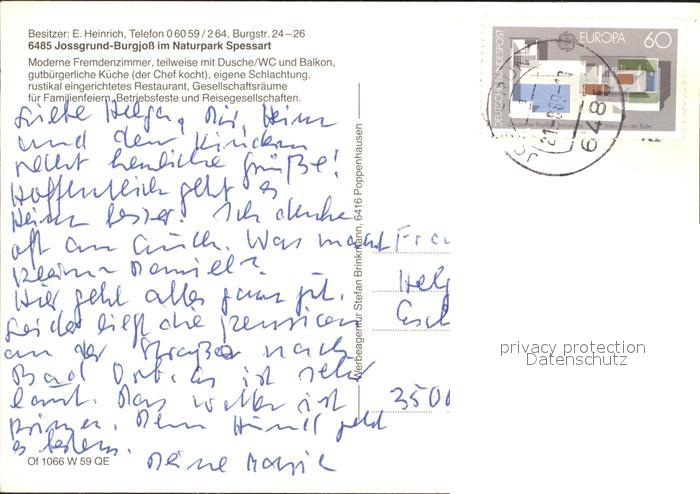 Besitzer: E. Heinrich, Telefon 0 60 59 / 2 64, Burgstr. 24–26
6485 Jossgrund-Burgjoß im Naturpark Spessart
Moderne Fremdenzimmer, teilweise mit Dusche/WC und Balkon,
gutbürgerliche Küche (der Chef kocht), eigene Schlachtung,
rustikal eingerichtetes Restaurant, Gesellschaftsräume
für Familienfeiern, Betriebsfeste und Reisegesellschaften.
Liebe Helga, Dir, Heinz
und den Kindern
recht herzliche Grüße!
Hoffentlich geht es
Heinz besser. Ich denke
oft an Euch. Was macht
Daniel?
Hier geht alles ganz gut.
Leider liegt die Pension
an der Straße nach
Bad Orb. Es ist sehr
laut. Das Wetter ist
Dem Hund geht
es bestens.
Deine
Of 1066 W 59 QE
Werbeagentur Stefan Brinkmann, 6416 Poppenhausen
DEUTSCHE BUNDESPOST
EUROPA
60
648
Frau
Helg
3500
privacy protection
Datenschutz